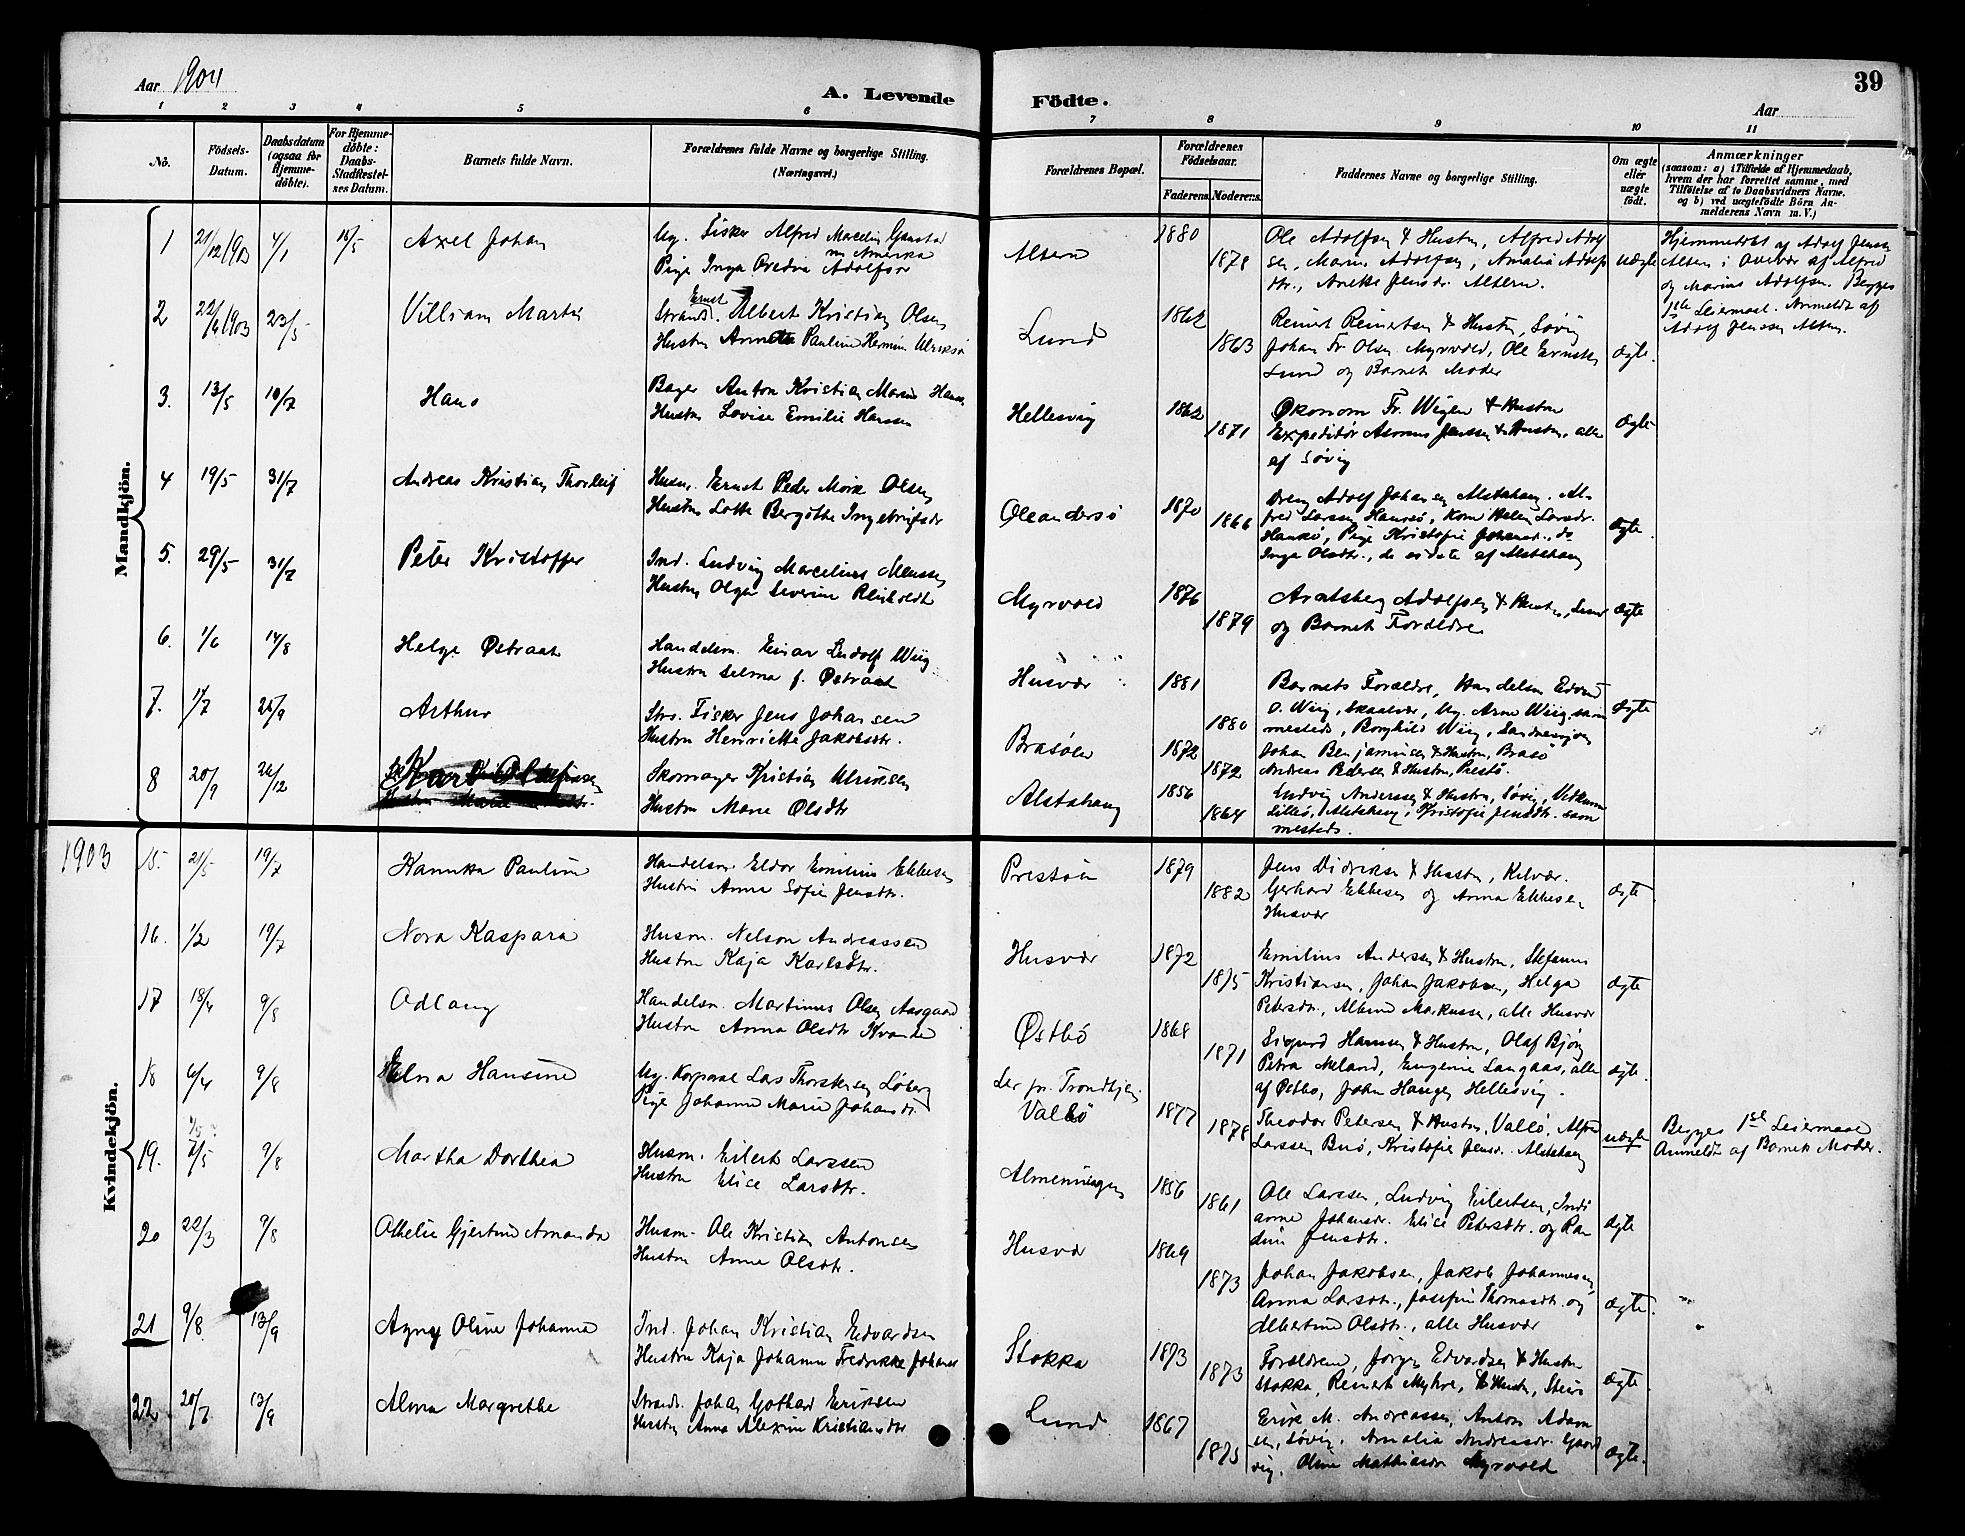 39
Aar 1904
A. Levende Födte.
Aar
1 2 3 4 5 6 7 8 9 10 11
No.
Födsels-Datum.
Daabsdatum (ogsaa for Hjemme-döbte).
For Hjemme-döbte: Daabs-Stadfæstel-ses Datum.
Barnets fulde Navn.
Forældrenes fulde Navne og borgerlige Stilling. (Næringsvei.)
Forældrenes Bopæl.
Forældrenes Födselsaar.
Faderens. Moderens.
Faddernes Navne og borgerlige Stilling.
Om ægte eller uægte födt.
Anmærkninger
(saasom: a) i Tilfælde af Hjemmedaab,
hvem der har forrettet samme, med
Tilföielse af to Daabsvidners Navne.
og b) ved uægtefödte Börn An-
melderens Navn m. V.)
Mandkjön.
1 21/12 1903 4/1 15/5 Axel Johan
Ug. Fisker Alfred Marcelius
Pige Inga Adolfsdr
Altern 1880 1878
Ole Adolfsen & Hustru, Alfred Adolf
sen, Marius Adolfsen, Amalia Adolfs
dtr., Anette Jensdr. Altern.
uægte
Hjemmedøbt af Adolf Jensen
Altern i Overvær af Alfred
og Marius Adolfsen. Begges
1ste Leiermaal. Anmeldt af
Adolf Jensen Altern.
2 23/5 Villiam Martin
Strands. Ernst Albert Kristian Olsen
Hustru Annette Pauline Hermine Ulriksd
Lund 1862 1863
Reinert Reinertsen & Hustru, Søvig
Johan Fr. Olsen Myrvold, Ole Ernstsen
Lund og Barnets Moder
ægte.
3. 13/5 10/7 Hans
Bager Anton Kristian Marius Hansen
Hustru Lovise Emilie Hanssen
Hellesvig 1862 1871
Økonom Fr. Wigen & Hustru
Expeditør Asmus Jenssen & Hustru, alle
af Søvig
ægte
4 19/5 31/7 Andreas Kristian Thorleif
Husm. Ernst Peder Mørk Olsen
Hustru Lotte Bergitte Ingebrigtsdr
Oleandersø 1870 1866
Dreng Adolf Johansen Alstahaug. Al-
fred Larssen Hansø, Kone Helen Larsdr.
Hansø, Pige Kristofie do
Inga Olsdtr., de sidste af Alstahaug
ægte.
5. 29/5 31/7 Peter Kristoffer
Ind. Ludvig Marcelius
Hustru Olga Severine
Myrvold 1876 1879
Adolfsen & Hustru, Lund
og Barnets Forældre
ægte
6. 1/6 14/8 Helge Østraat
Handelsm. Einar Ludolf Wiig
Hustru Selma f. Østraat
Husvær 1881 1880
Barnets Forældre, Handelsm Edvard
O. Wiig, Skaalvær, Ug. Arne Wiig, sam
mesteds, Borghild Wiig, Sandnessjøen
ægte
7. 1/7 25/9 Arthur
Strs. Fisker Jens Johansen
Hustru Henriette Jakobsdtr.
Brasøen 1872 1872
Johan Benjaminsen & Hustru, Brasø
Andreas Pedersen & Hustru, Prestø.
8 20/9 26/12 Karl
Skomager Kristian Ulriksen
Hustru Marie Olsdtr
Alstahaug 1856 1864
Ludvig Anderssen & Hustru, Søvig,
Alstahaug, Kristofie Jensdtr. sam
mesteds.
1903
Kvindekjön.
15. 21/5 19/7 Pauline
Handelsm. Eldor Emilius Ebbesen
Hustru Anna Sofie Jensdtr.
Prestøen 1879 1882
Jens Didriksen & Hustru, Kilvær.
Gerhard Ebbesen og Anna Ebbesen
Husvær
ægte.
16. 1/2 19/7 Nora Kaspara
Husm. Nelson Andreassen
Hustru Kaja Karlsdtr.
Husvær 1872 1875
Emilius Anderssen & Hustru, Stefanus
Kristiansen, Johan Jakobsen, Helga
Petersdtr., Albine Markussen, alle Husvær
ægte
17 18/4 9/8 Odlaug
Handelsm. Martinus Olsen Aasgaard
Hustru Anna Olsdtr Kvande
Østbø 1868 1871
Sigurd Hansen & Hustru, Olaf Bjørn
Petra Meland, Eugenie Langaas, alle
af Østbø, John Haugen Hellesvig.
ægte.
18 6/4 9/8 Elna Hansine
Ug. Korporal Lars Thorstensen Løberg
Pige Johanna Marie Johansdr.
Ler pr. Trondhjem
Valsø 1877 1878
Theodor Petersen & Hustru, Valsø, Alfred
Larssen Busø, Kristofie Jensdr. Alstahaug
uægte
Begges 1ste Leiermaal
Anmeldt af Barnets Moder.
19. 7/5 9/8 Martha Dorthea
Husm. Eilert Larssen
Hustru Elice Larsdtr.
Almenningen 1856 1861
Ole Larssen, Ludvig Eilertsen, Indi
anna Johansdr. Elice Petersdtr. og Ran
dine Jensdtr.
ægte
20 22/3 9/8 Othelie Gjertine Amanda
Husm. Ole Kristian Antonsen
Hustru Anna Olsdtr.
Husvær 1869 1873
Johan Jakobsen, Jakob Johannesen
Anna Larsdtr., Josefine Thomasdtr. og
Albertine Olsdtr., alle Husvær
ægte.
21 9/8 13/9 Agnes Oline Johanna
Ind. Johan Kristian Edvardsen
Hustru Kaja Johanna Fredrikke Johansd
Stokka 1873 1873
Forældrene, Jørgen Edvardsen & Hustru
Stokka, Reinert Myhre, & Hustru,
ægte.
22. 20/7 13/9 Alma Margrethe
Strands. Johan Gothard Eriksen
Hustru Anna Alexine Kristiansdtr
Lund 1867 1875
Erik M. Andreassen, Anton Adam
sen, Søvig, Amalia Andreasdr.
Oline Mathiasdr Myrvold
ægte.